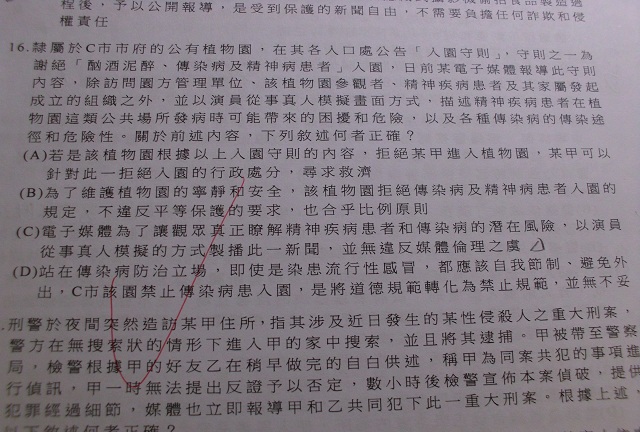 程後，予以公開報導，是受到保護的新聞自由，不需要負擔任何詐欺和侵
權責任
16.隸屬於C市市府的公有植物園，在其各入口處公告「入園守則」，守則之一為
謝絕「酗酒泥醉、傳染病及精神病患者」入園，日前某電子媒體報導此守則
內容，除訪問園方管理單位、該植物園參觀者、精神疾病患者及其家屬發起
成立的組織之外，並以演員從事真人模擬畫面方式，描述精神疾病患者在植
物園這類公共場所發病時可能帶來的困擾和危險，以及各種傳染病的傳染途
徑和危險性。關於前述內容，下列敘述何者正確？
(A)若是該植物園根據以上入園守則的內容，拒絕某甲進入植物園，某甲可以
針對此一拒絕入園的行政處分，尋求救濟
(B)為了維護植物園的寧靜和安全，該植物園拒絕傳染病及精神病患者入園的
規定，不違反平等保護的要求，也合乎比例原則
(C)電子媒體為了讓觀眾真正瞭解精神疾病患者和傳染病的潛在風險，以演員
從事真人模擬的方式製播此一新聞，並無違反媒體倫理之虞
(D)站在傳染病防治立場，即使是染患流行性感冒，都應該自我節制、避免外
出，C市該園禁止傳染病患者入園，是將道德規範轉化為禁止規範，並無不妥
.刑警於夜間突然造訪某甲住所，指其涉及近日發生的某性侵殺人之重大刑案，
警方在無搜索狀的情形下進入甲的家中搜索，並且將其逮捕。甲被帶至警察
局，檢警根據甲的好友乙在稍早做完的自白供述，稱甲為同案共犯的事項進
行偵訊，甲一時無法提出反證予以否定，數小時後檢警宣佈本案偵破，提供
犯罪經過細節，媒體也立即報導甲和乙共同犯下此一重大刑案。根據上述，
以下敘述何者正確？